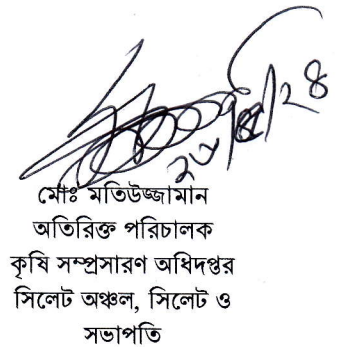 মোঃ মতিউজ্জামান
অতিরিক্ত পরিচালক
কৃষি সম্প্রসারণ অধিদপ্তর
সিলেট অঞ্চল, সিলেট ও
সভাপতি